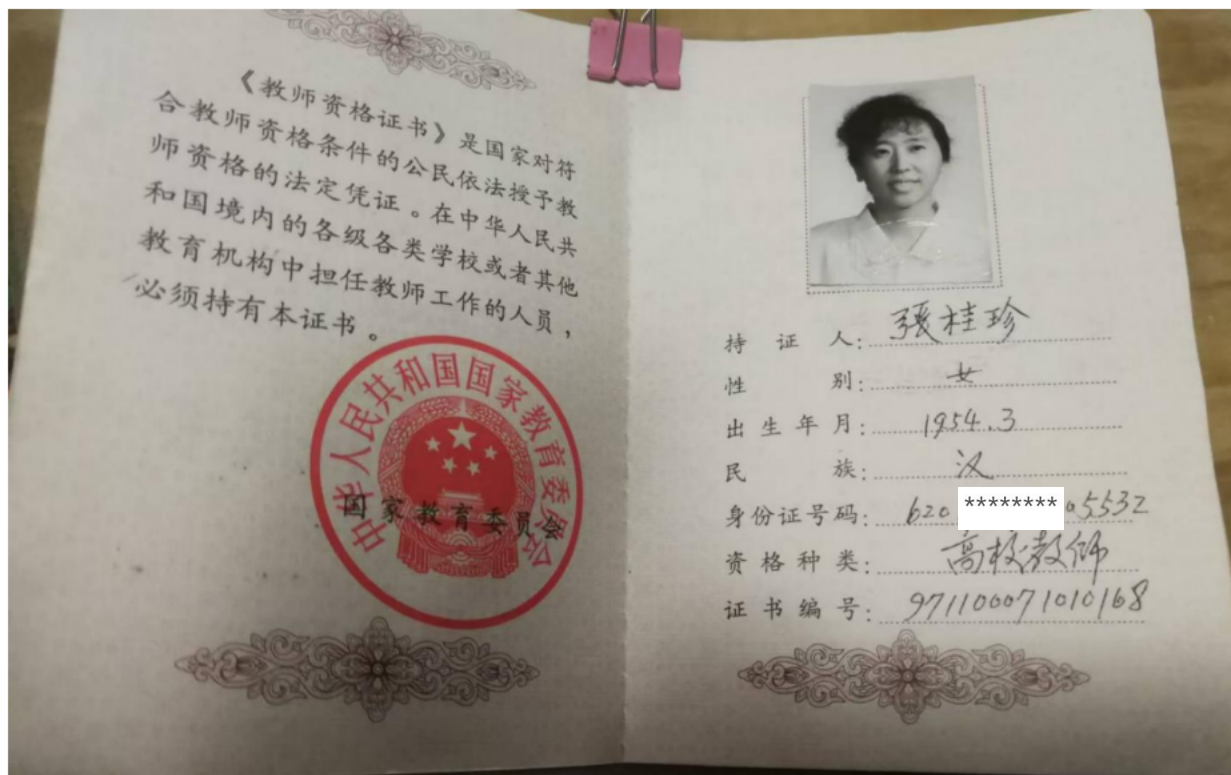 《教师资格证书》是国家对符
合教师资格条件的公民依法授予教
师资格的法定凭证。在中华人民共
和国境内的各级各类学校或者其他
教育机构中担任教师工作的人员，
必须持有本证书。
中华人民共和国国家教育委员会
国家教育委员会
持证人：張桂珍
性别：女
出生年月：1954.3
民族：汉
身份证号码：620********05532
资格种类：高校教师
证书编号：971100071010168